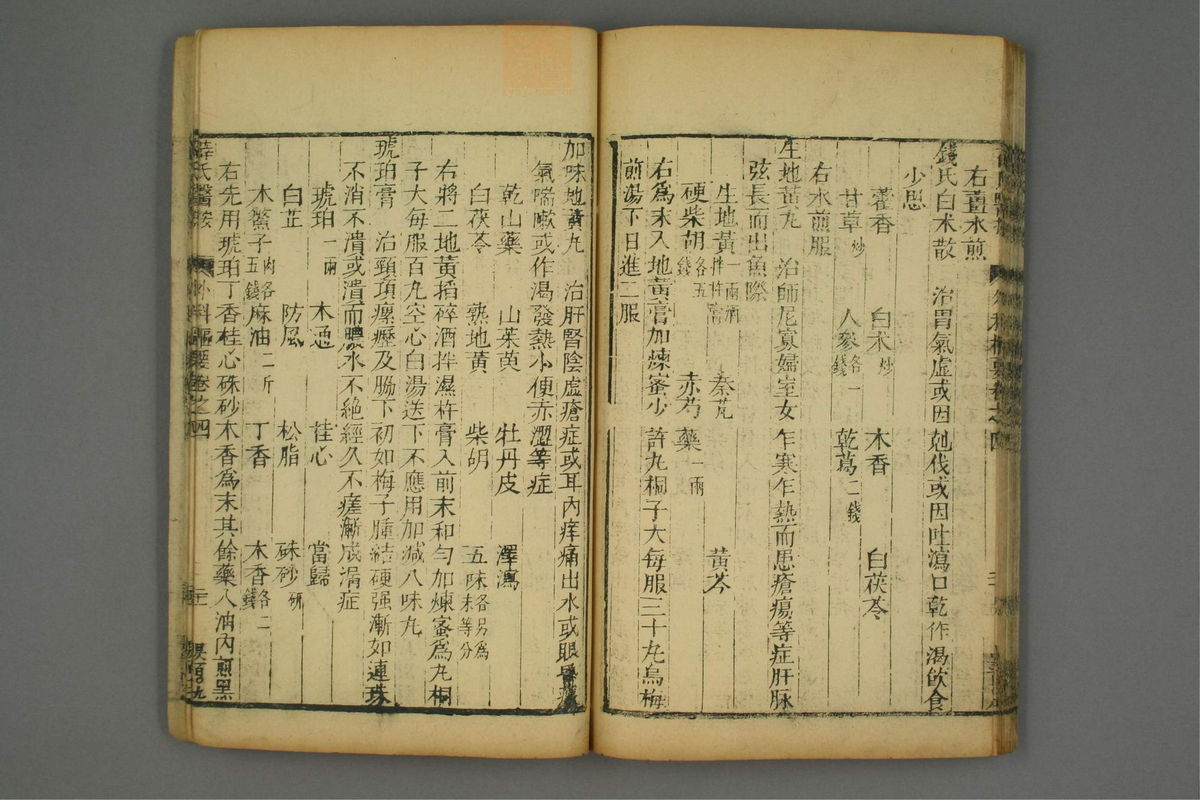 右薑水煎
錢氏白朮散　治胃氣虛或因尅伐或因吐瀉口乾作渴飲食
少思
藿香　白朮炒　木香　白茯苓
甘草炒　人參各一錢　乾葛二錢
右水煎服
生地黃丸　治師尼寡婦室女乍寒乍熱而患瘡瘍等症肝脉
弦長而出魚際
生地黃一兩酒拌杵膏　秦艽　黃芩
硬柴胡各五錢　赤芍藥一兩
右爲末入地黃膏加煉蜜少許丸桐子大每服三十丸烏梅
煎湯下日進二服
加味地黃丸　治肝腎陰虛瘡症或耳內痒痛出水或眼昏痰
氣喘嗽或作渴發熱小便赤澀等症
乾山藥　山茱萸　牡丹皮　澤瀉
白茯苓　熟地黃　柴胡　五味各另爲末等分
右將二地黃搯碎酒拌濕杵膏入前末和勻加煉蜜爲丸桐
子大每服百丸空心白湯送下不應用加減八味丸
琥珀膏　治頸項瘰癧及腋下初如梅子腫結硬强漸如連珠
不消不潰或潰而膿水不絕經久不瘥漸成漏症
琥珀一兩　木通　桂心　當歸
白芷　防風　松脂　硃砂研
木鱉子肉各五錢　麻油二斤　丁香　木香各二錢
右先用琥珀丁香桂心硃砂木香爲末其餘藥入油內煎黑
薛氏醫按　外科樞要卷之四